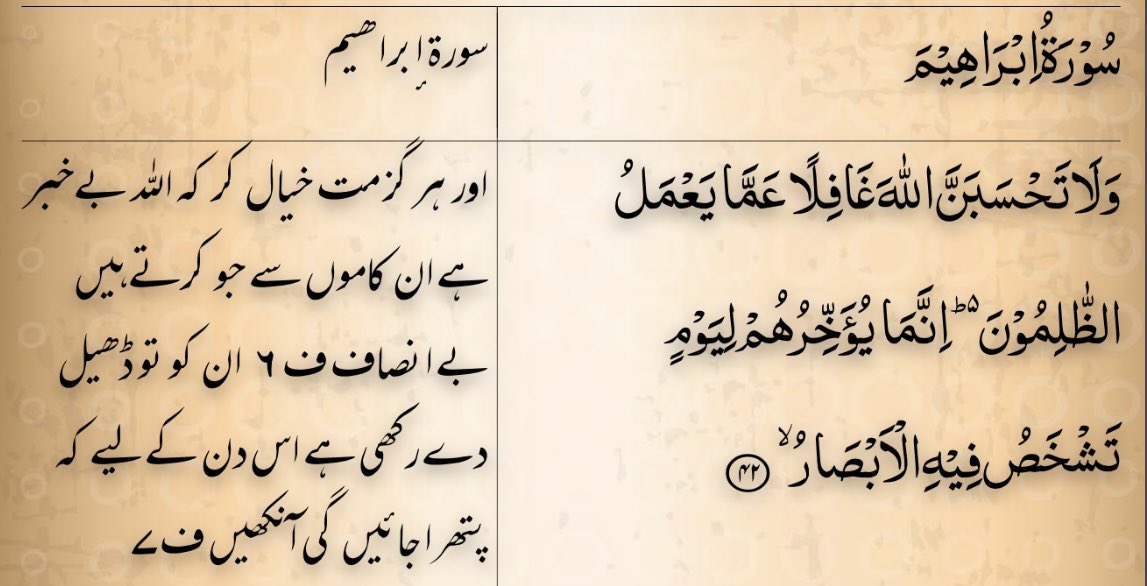 سُوْرَةُ اِبْرَاهِيْمَ
سورة إبراهيم
وَلَا تَحْسَبَنَّ اللّٰهَ غَافِلًا عَمَّا يَعْمَلُ
الظّٰلِمُوْنَ ۵ؕ اِنَّمَا يُؤَخِّرُهُمْ لِيَوْمٍ
تَشْخَصُ فِيْهِ الْاَبْصَارُ ۙ ﴿۴۲﴾
اور ہر گز مت خیال کر کہ اللہ بے خبر
ہے ان کاموں سے جو کرتے ہیں
بے انصاف ف ۶ ان کو تو ڈھیل
دے رکھی ہے اس دن کے لیے کہ
پتھرا جائیں گی آنکھیں ف ۷